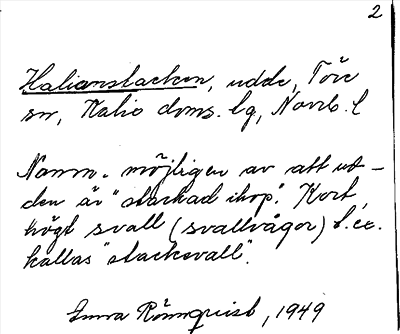 2
Halianstacken, udde, Töre
sn, Kalix doms. lg, Norrb. l
Namn. möjligen av att ud-
den är "stackad ihop". Kort,
högt svall (svallvågor) t.ex.
kallas "stacksvall".
Anna Rönnquist, 1949